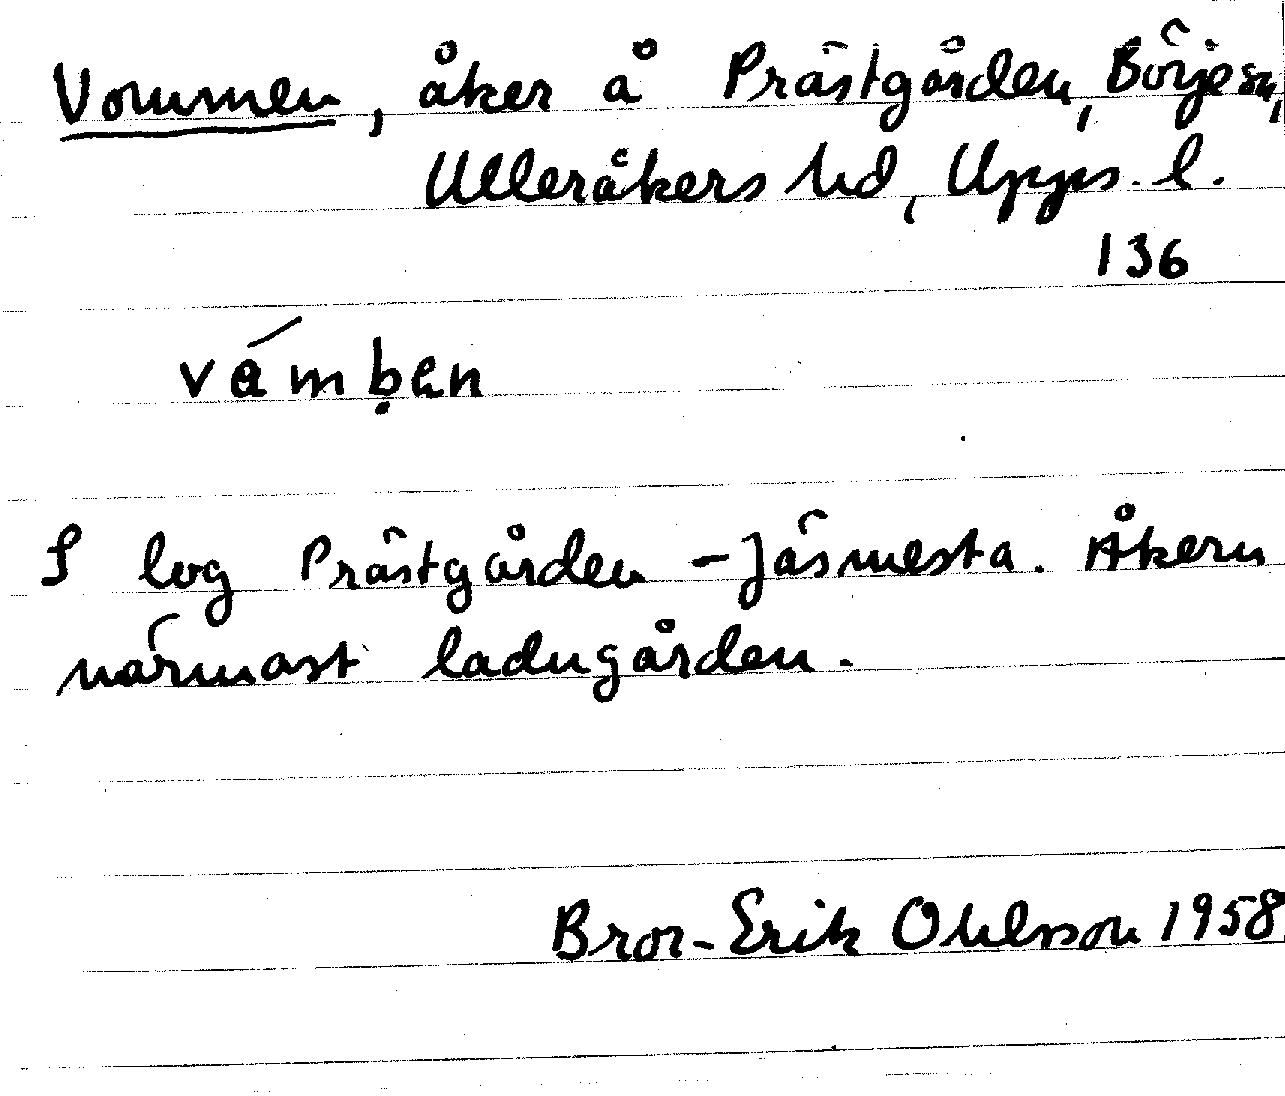 Vommen, åker å Prästgården, Börje sn,
Ulleråkers hd, Upps. l.
136
vámḅen
S log Prästgården - Jäsmesta. Åkern
närmast ladugården.
Bror-Erik Ohlsson 1958.